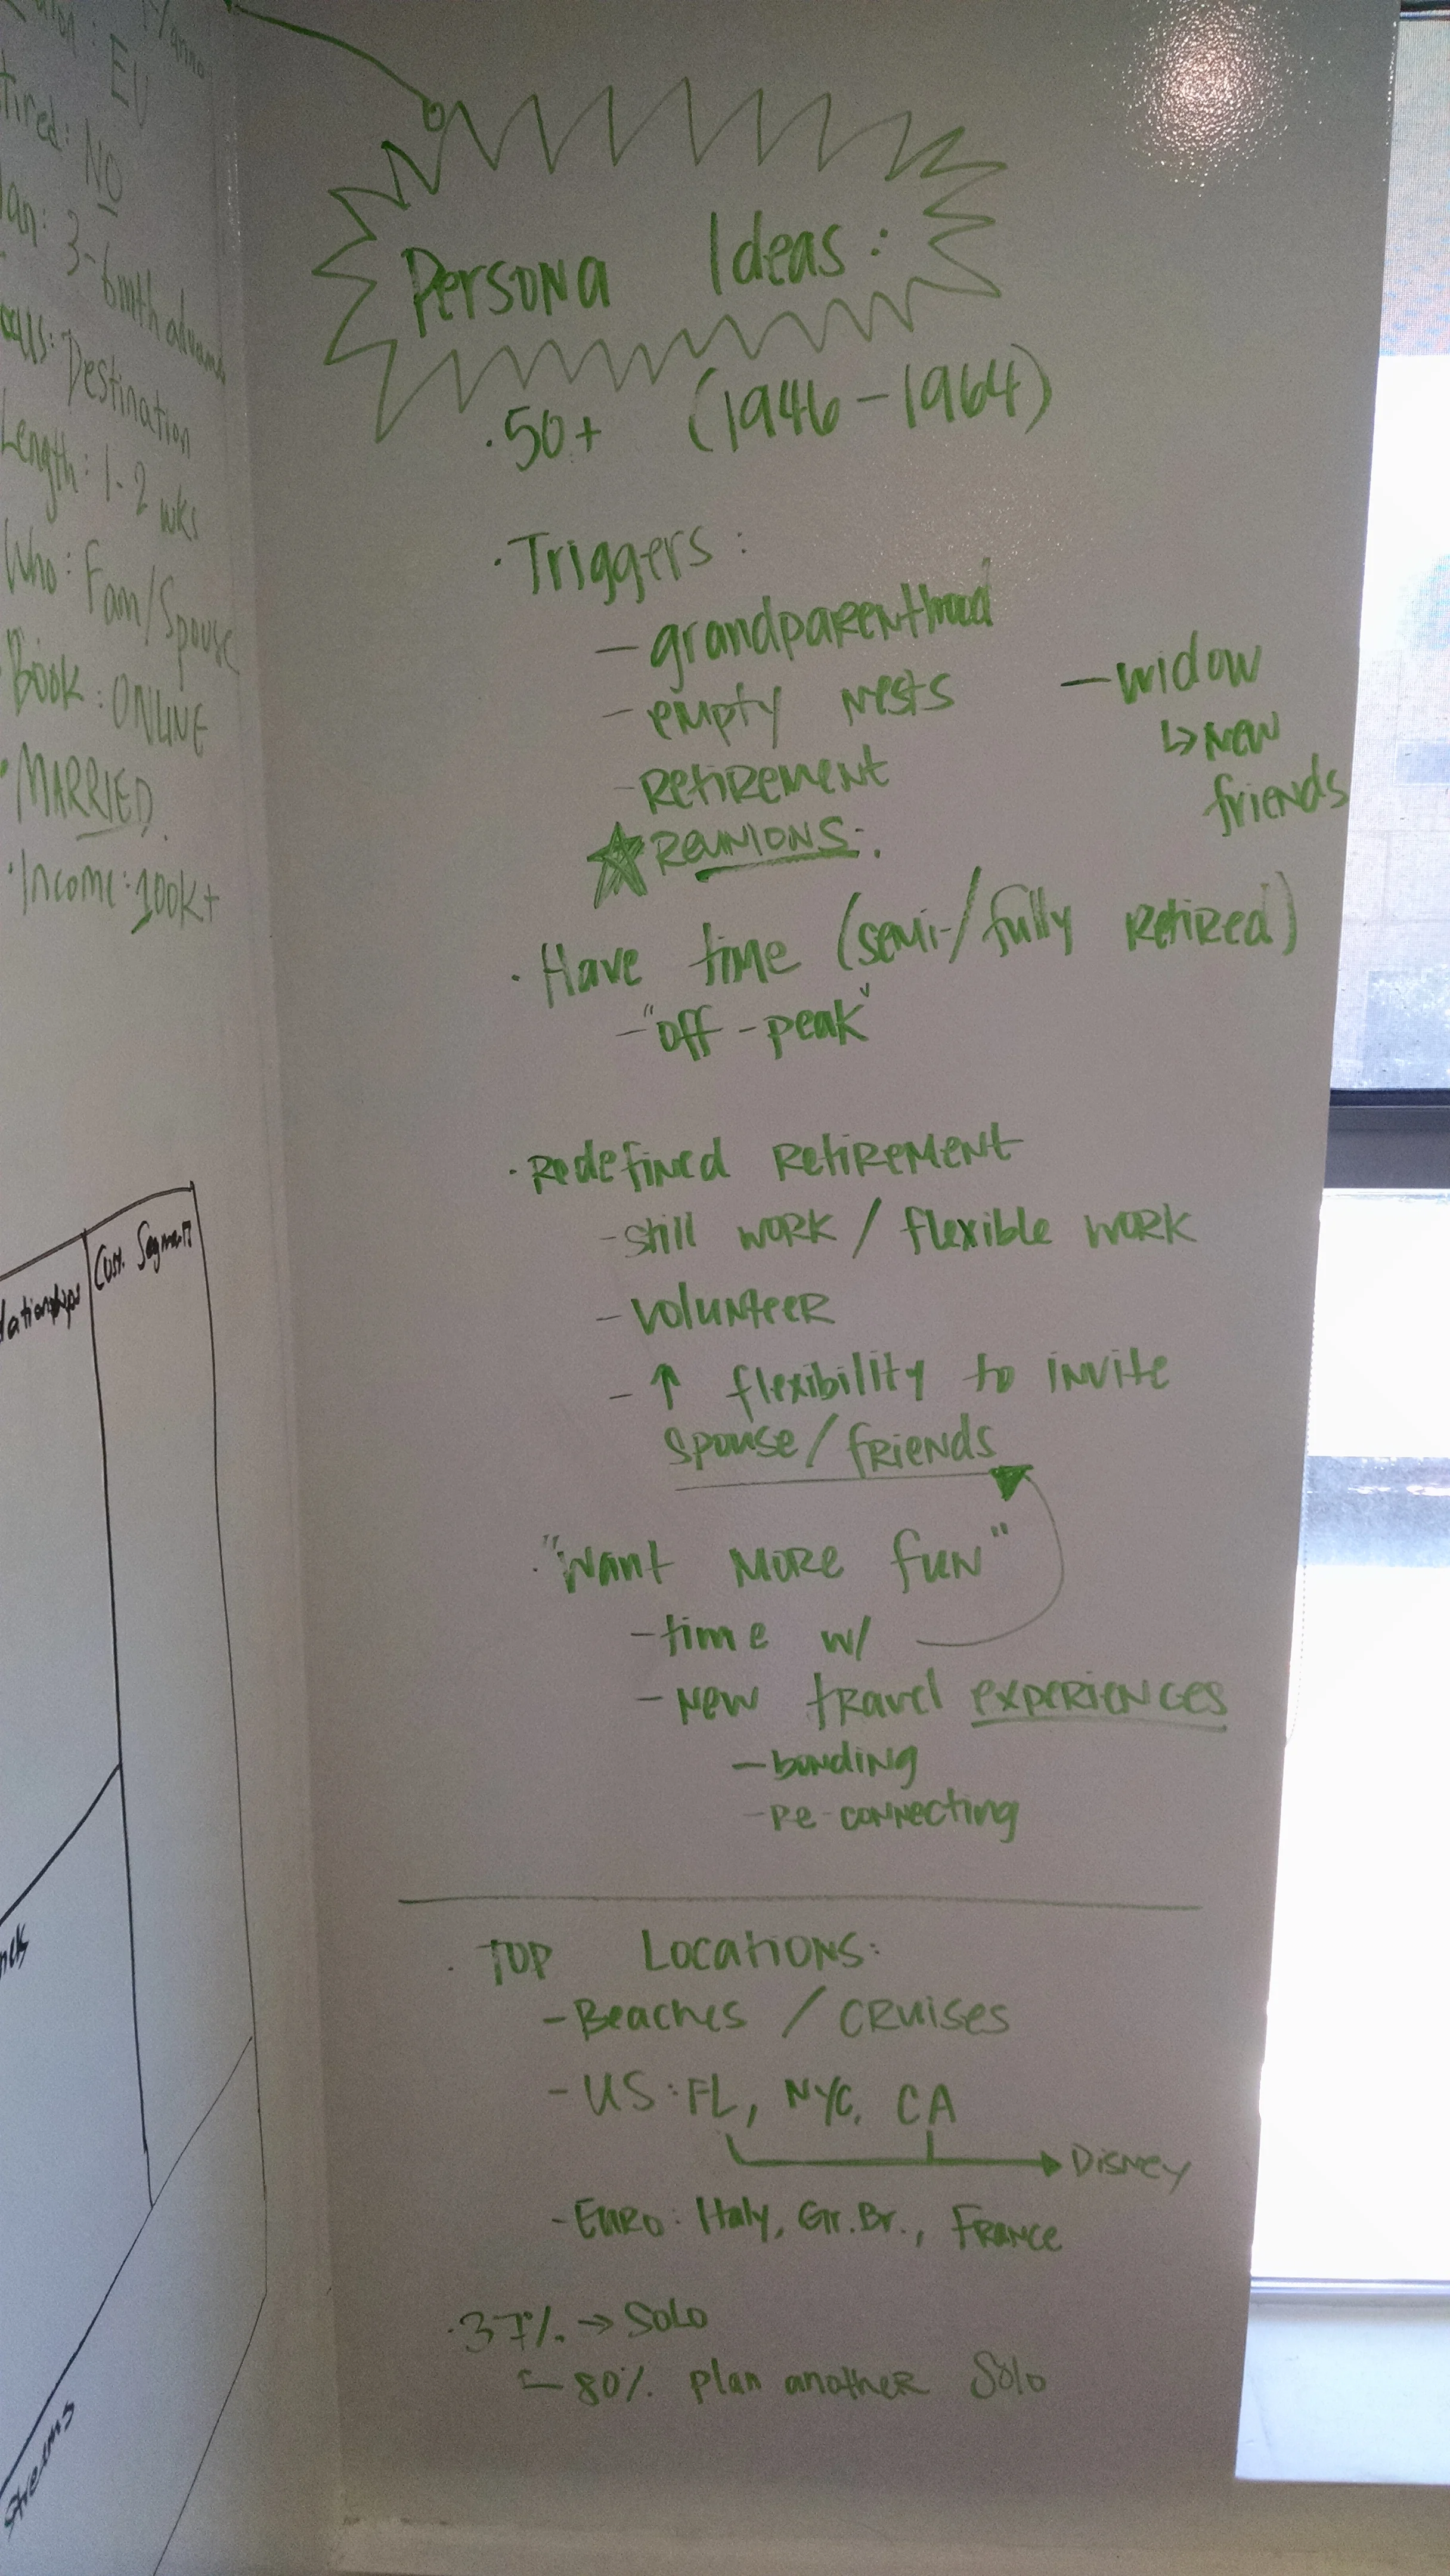 EU
NO
3-6mth
Destination
Length: 1-2 wks
Who: Fam/Spouse
Book: ONLINE
• MARRIED
• Income: 100K+
Cust. Segment
Persona Ideas:
• 50+ (1946-1964)
• Triggers:
- grandparenthood
- empty nests
- Retirement
★ Reunions:
- widow
↳ new
friends
• Have time (semi-/fully retired)
- "off-peak"
• Redefined Retirement
- still work / flexible work
- volunteer
- ↑ flexibility to invite
spouse/friends
• "Want more fun"
- time w/
- New travel experiences
- bonding
- Re-connecting
• Top Locations:
- Beaches / Cruises
- US: FL, NYC, CA
→ Disney
- Euro: Italy, Gr. Br., France
• 37% → Solo
80% plan another Solo